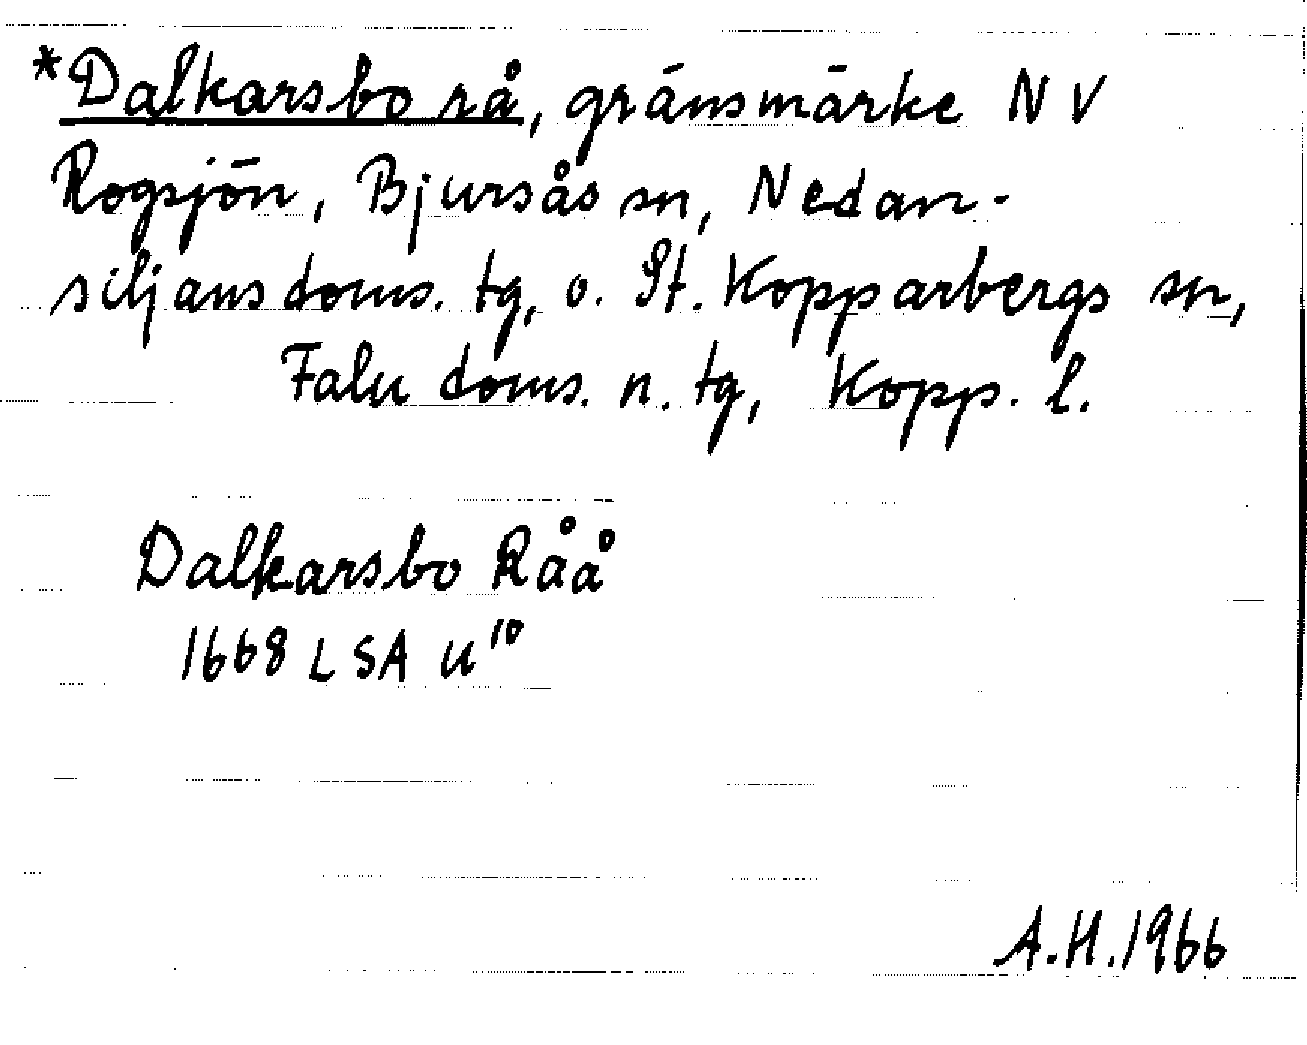 *Dalkarsbo rå, gränsmärke NV
Rogsjön, Bjursås sn, Nedan-
siljans doms. tg, o. St. Kopparbergs sn,
Falu doms. n. tg, Kopp. l.
Dalkarsbo Råå
1668 LSA U¹⁰
A.H. 1966